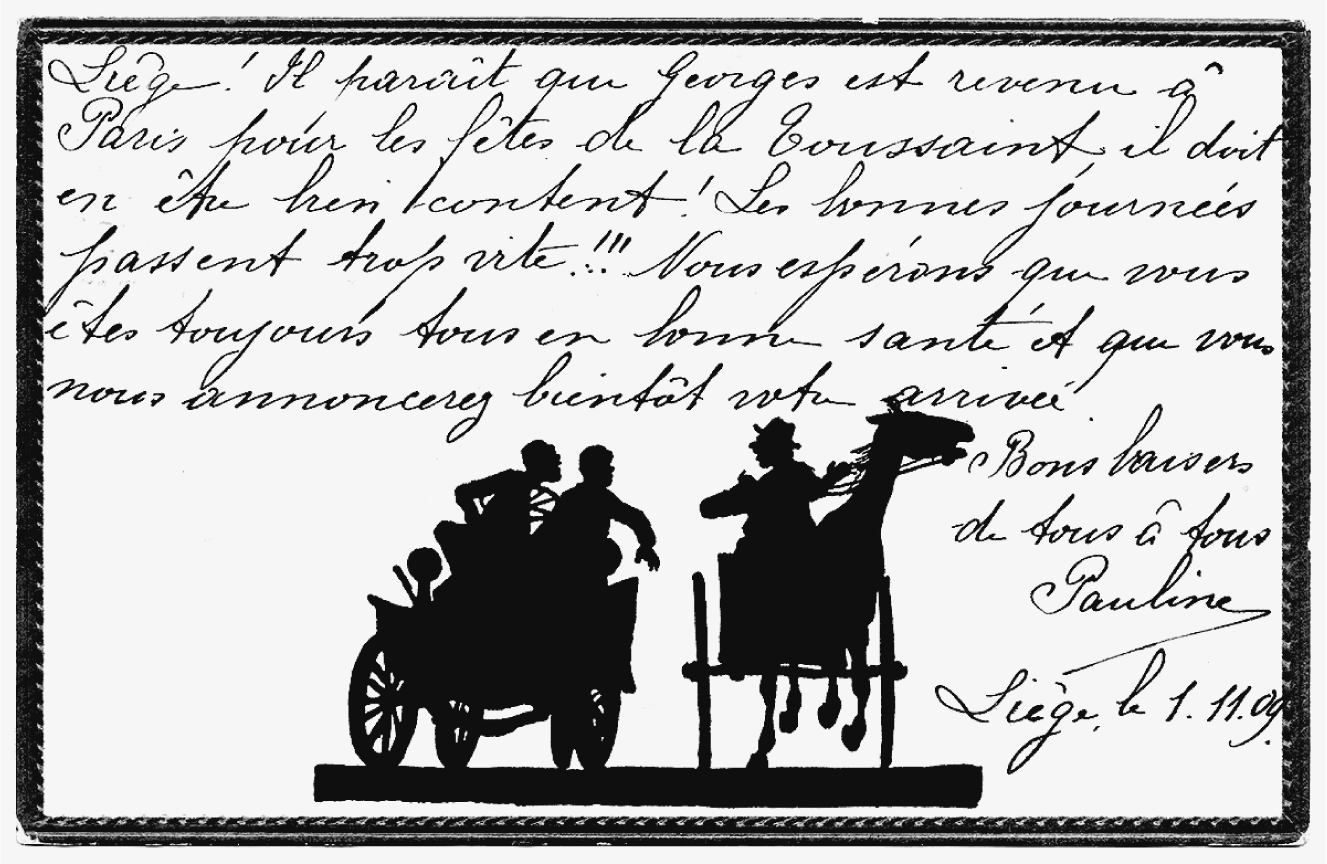 Liège! Il paraît que Georges est revenu à
Paris pour les fêtes de la Toussaint, il doit
en être bien content! Les bonnes journées
passent trop vite!!! Nous espérons que vous
êtes toujours tous en bonne santé et que vous
nous annoncerez bientôt votre arrivée.
Bons baisers
de tous à tous
Pauline
Liège, le 1.11.09.